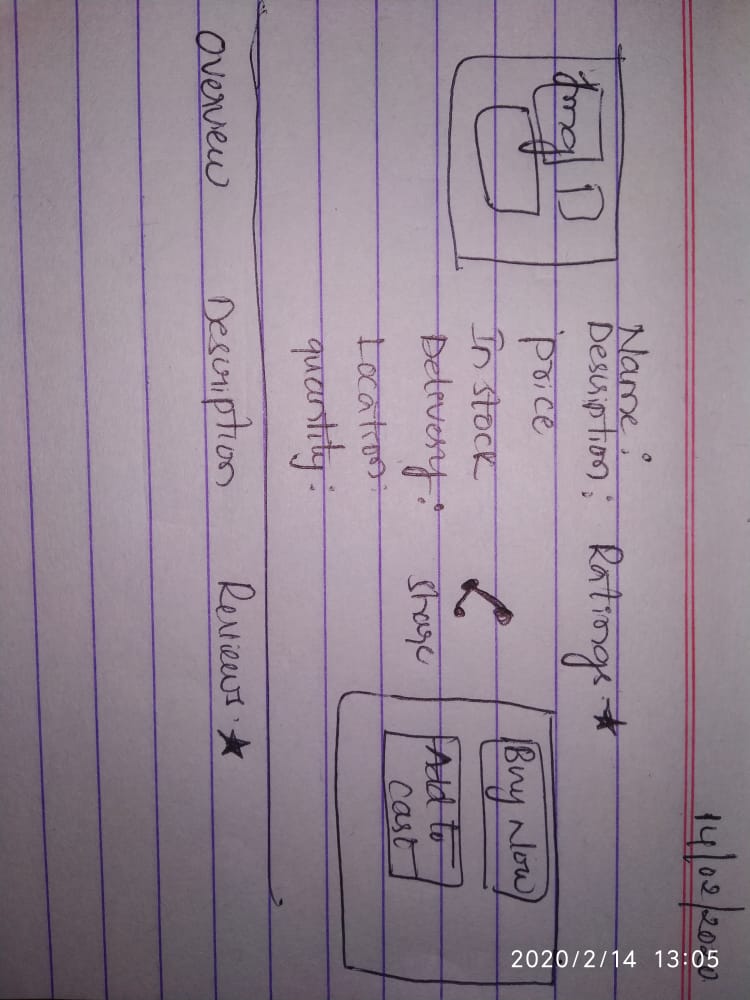 14/02/2020
Img D
Name:
Description: Ratings ★
Price
In stock
Delivery: Share
Location:
quantity:
Buy Now
Add to
cart
Overview Description Reviews. ★
2020/2/14 13:05